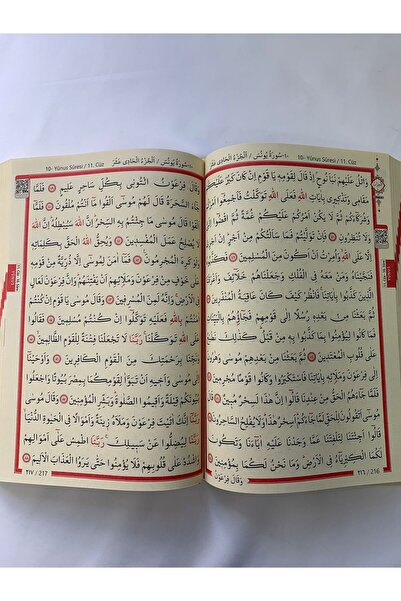 10- Yûnus Sûresi / 11. Cüz ١٠-سُورَةُ يُونُسَ / اَلْجُزْءُ الْحَادِي عَشَرَ
وَاتْلُ عَلَيْهِمْ نَبَاَ نُوحٍ اِذْ قَالَ لِقَوْمِهِ يَا قَوْمِ اِنْ كَانَ كَبُرَ عَلَيْكُمْ
مَقَامِي وَتَذْكِيرِي بِاٰيَاتِ اللّٰهِ فَعَلَى اللّٰهِ تَوَكَّلْتُ فَاَجْمِعُوا اَمْرَكُمْ
وَشُرَكَاءَكُمْ ثُمَّ لَا يَكُنْ اَمْرُكُمْ عَلَيْكُمْ غُمَّةً ثُمَّ اقْضُوا اِلَيَّ وَ
لَا تُنْظِرُونِ فَاِنْ تَوَلَّيْتُمْ فَمَا سَاَلْتُكُمْ مِنْ اَجْرٍ اِنْ اَجْرِيَ
اِلَّا عَلَى اللّٰهِ وَاُمِرْتُ اَنْ اَكُونَ مِنَ الْمُسْلِمِينَ فَكَذَّبُوهُ
فَنَجَّيْنَاهُ وَمَنْ مَعَهُ فِي الْفُلْكِ وَجَعَلْنَاهُمْ خَلَائِفَ وَاَغْرَقْنَا
الَّذِينَ كَذَّبُوا بِاٰيَاتِنَا فَانْظُرْ كَيْفَ كَانَ عَاقِبَةُ الْمُنْذَرِينَ
ثُمَّ بَعَثْنَا مِنْ بَعْدِهِ رُسُلًا اِلٰى قَوْمِهِمْ فَجَاؤُهُمْ بِالْبَيِّنَاتِ
فَمَا كَانُوا لِيُؤْمِنُوا بِمَا كَذَّبُوا بِهِ مِنْ قَبْلُ كَذٰلِكَ نَطْبَعُ
عَلٰى قُلُوبِ الْمُعْتَدِينَ ثُمَّ بَعَثْنَا مِنْ بَعْدِهِمْ مُوسٰى وَهٰرُونَ
اِلٰى فِرْعَوْنَ وَمَلَائِهِ بِاٰيَاتِنَا فَاسْتَكْبَرُوا وَكَانُوا قَوْمًا مُجْرِمِينَ
فَلَمَّا جَاءَهُمُ الْحَقُّ مِنْ عِنْدِنَا قَالُوا اِنَّ هٰذَا لَسِحْرٌ مُبِينٌ قَالَ
مُوسٰى اَتَقُولُونَ لِلْحَقِّ لَمَّا جَاءَكُمْ اَسِحْرٌ هٰذَا وَلَا يُفْلِحُ السَّاحِرُونَ
قَالُوا اَجِئْتَنَا لِتَلْفِتَنَا عَمَّا وَجَدْنَا عَلَيْهِ اٰبَاءَنَا وَتَكُونَ
لَكُمَا الْكِبْرِيَاءُ فِي الْاَرْضِ وَمَا نَحْنُ لَكُمَا بِمُؤْمِنِينَ
وَقَالَ فِرْعَوْنُ
٢١٦ / 216
10- Yûnus Sûresi / 11. Cüz ١٠-سُورَةُ يُونُسَ / اَلْجُزْءُ الْحَادِي عَشَرَ
وَقَالَ فِرْعَوْنُ ائْتُونِي بِكُلِّ سَاحِرٍ عَلِيمٍ فَلَمَّا
جَاءَ السَّحَرَةُ قَالَ لَهُمْ مُوسٰى اَلْقُوا مَا اَنْتُمْ مُلْقُونَ فَلَمَّا
اَلْقَوْا قَالَ مُوسٰى مَا جِئْتُمْ بِهِ السِّحْرُ اِنَّ اللّٰهَ سَيُبْطِلُهُ اِنَّ اللّٰهَ
لَا يُصْلِحُ عَمَلَ الْمُفْسِدِينَ وَيُحِقُّ اللّٰهُ الْحَقَّ بِكَلِمَاتِهِ
وَلَوْ كَرِهَ الْمُجْرِمُونَ فَمَا اٰمَنَ لِمُوسٰى اِلَّا ذُرِّيَّةٌ مِنْ قَوْمِهِ
عَلٰى خَوْفٍ مِنْ فِرْعَوْنَ وَمَلَائِهِمْ اَنْ يَفْتِنَهُمْ وَاِنَّ فِرْعَوْنَ لَعَالٍ
فِي الْاَرْضِ وَاِنَّهُ لَمِنَ الْمُسْرِفِينَ وَقَالَ مُوسٰى يَا قَوْمِ اِنْ كُنْتُمْ
اٰمَنْتُمْ بِاللّٰهِ فَعَلَيْهِ تَوَكَّلُوا اِنْ كُنْتُمْ مُسْلِمِينَ فَقَالُوا
عَلَى اللّٰهِ تَوَكَّلْنَا رَبَّنَا لَا تَجْعَلْنَا فِتْنَةً لِلْقَوْمِ الظَّالِمِينَ
وَنَجِّنَا بِرَحْمَتِكَ مِنَ الْقَوْمِ الْكَافِرِينَ وَاَوْحَيْنَا
اِلٰى مُوسٰى وَاَخِيهِ اَنْ تَبَوَّاٰ لِقَوْمِكُمَا بِمِصْرَ بُيُوتًا وَاجْعَلُوا
بُيُوتَكُمْ قِبْلَةً وَاَقِيمُوا الصَّلٰوةَ وَبَشِّرِ الْمُؤْمِنِينَ وَقَالَ مُوسٰى
رَبَّنَا اِنَّكَ اٰتَيْتَ فِرْعَوْنَ وَمَلَاَهُ زِينَةً وَاَمْوَالًا فِي الْحَيٰوةِ الدُّنْيَا
رَبَّنَا لِيُضِلُّوا عَنْ سَبِيلِكَ رَبَّنَا اطْمِسْ عَلٰى اَمْوَالِهِمْ
وَاشْدُدْ عَلٰى قُلُوبِهِمْ فَلَا يُؤْمِنُوا حَتّٰى يَرَوُا الْعَذَابَ الْاَلِيمَ
٢١٧ / 217